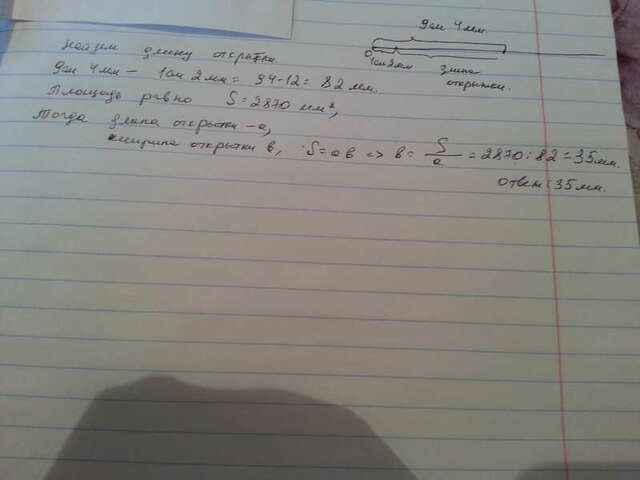 9см 4мм.
0
1см 2мм
длина
открытки.
Найдем длину открытки.
9см 4мм - 1см 2мм = 94-12 = 82 мм.
Площадь равно S = 2870 мм²,
Тогда длина открытки - a,
ширина открытки b, S = ab => b = S/a = 2870 : 82 = 35мм.
ответ: 35мм.